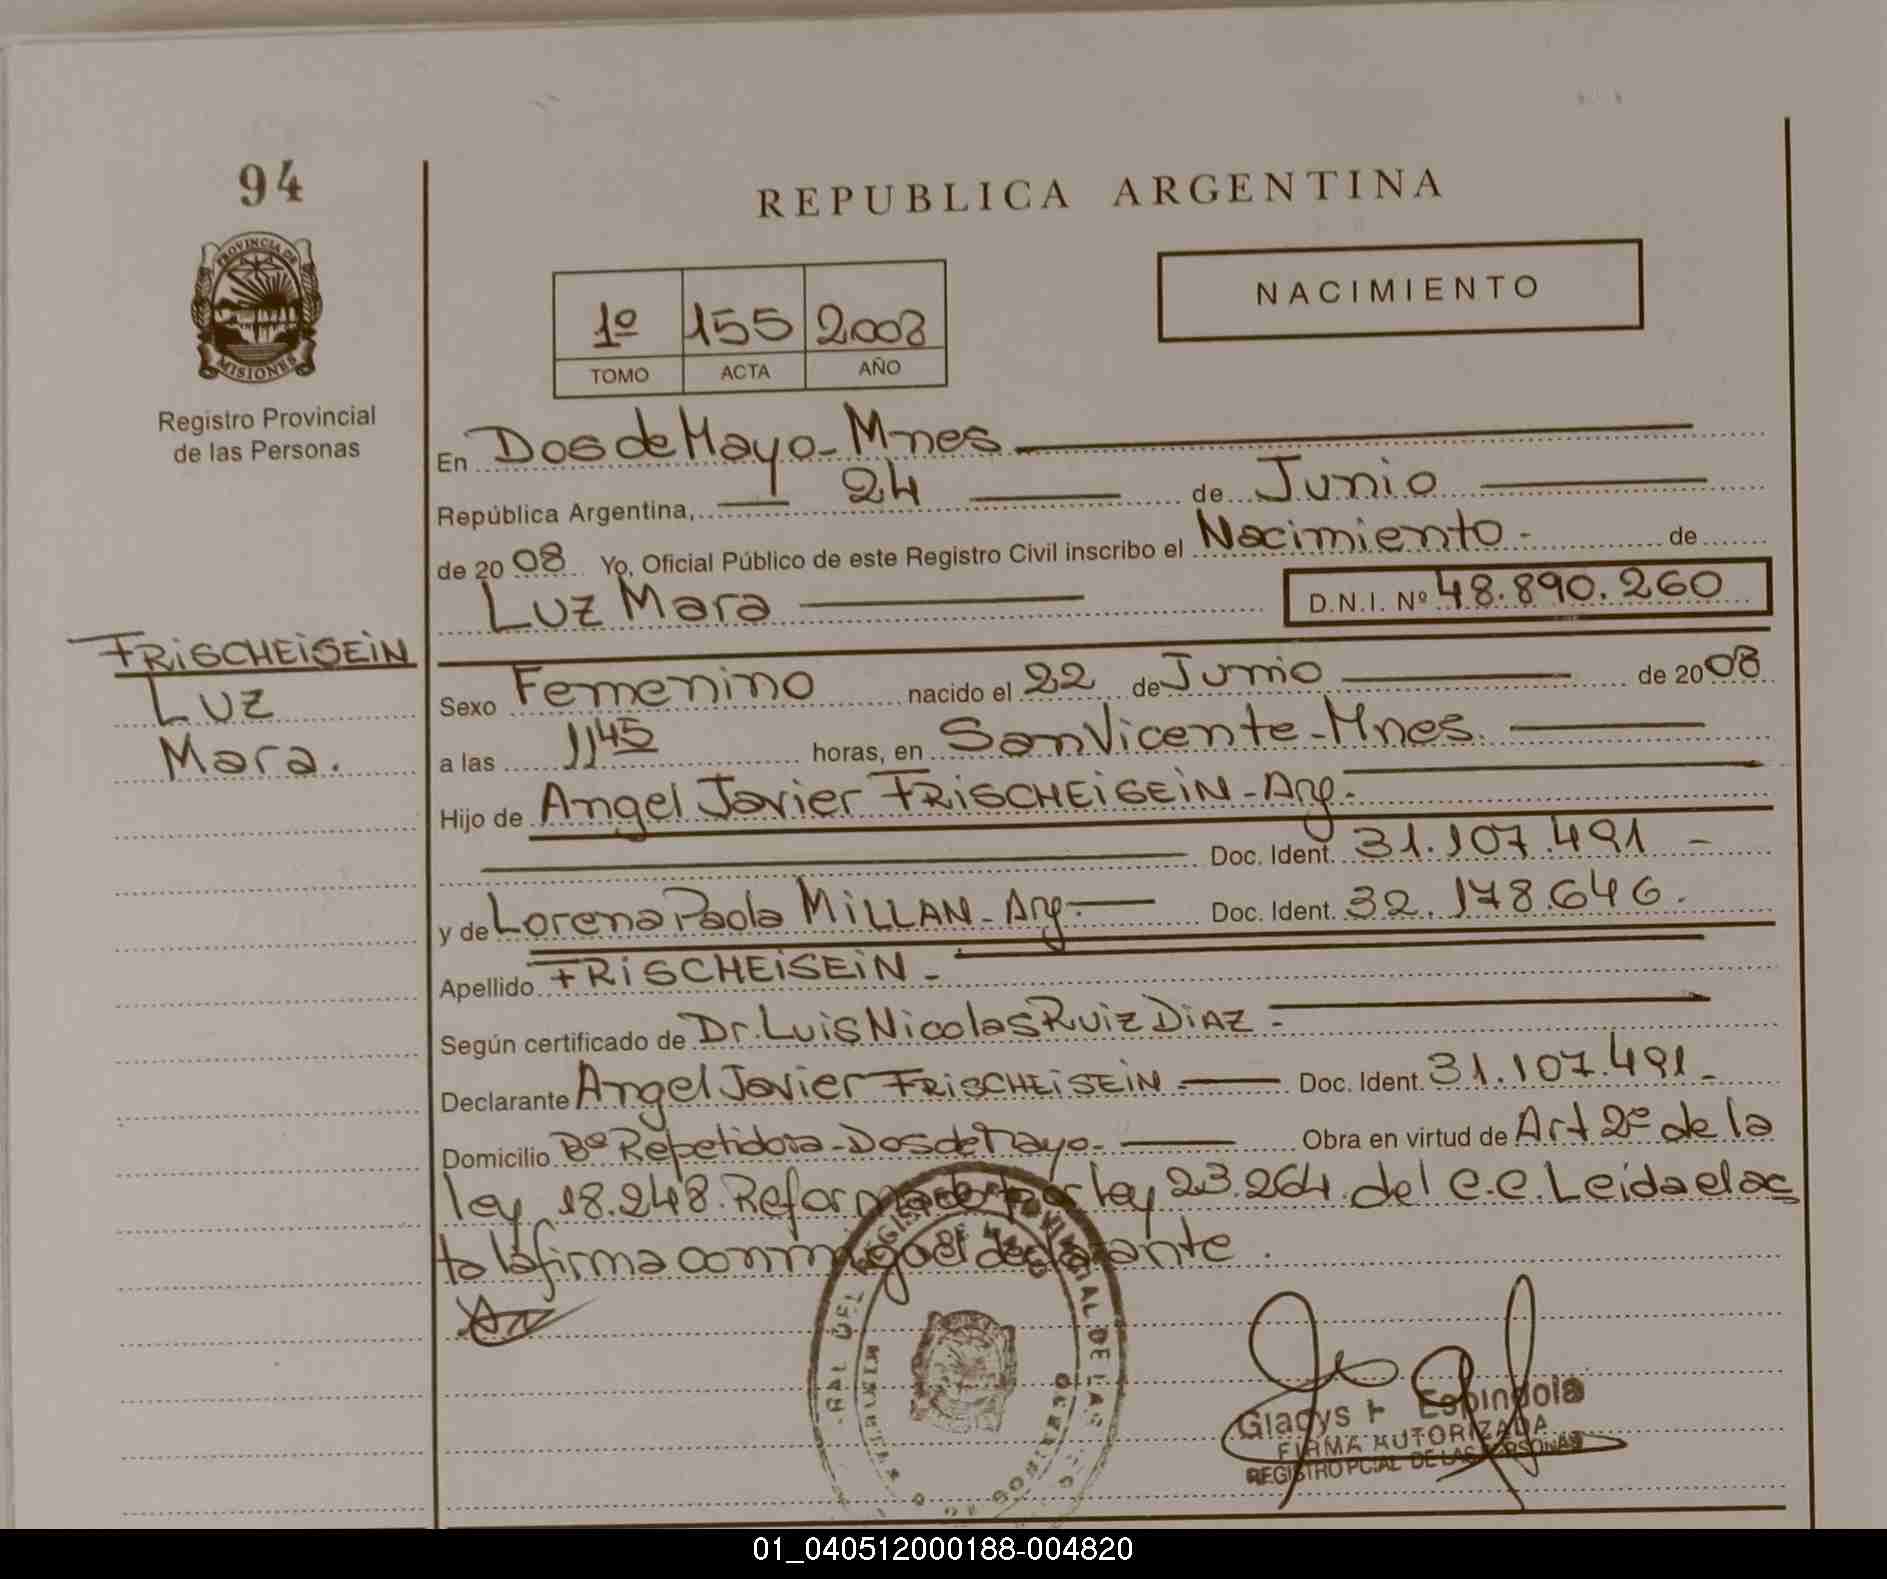 94
REPUBLICA ARGENTINA
PROVINCIA DE
MISIONES
NACIMIENTO
1º 155 2008
TOMO ACTA AÑO
Registro Provincial
de las Personas
En Dos de Mayo - Mnes
República Argentina, 24 de Junio
de 2008 Yo, Oficial Público de este Registro Civil inscribo el Nacimiento - de
Luz Mara D.N.I. Nº 48.890.260
FRISCHEISEIN
Luz
Mara.
Sexo Femenino nacido el 22 de Junio de 2008
a las 11 45 horas, en San Vicente - Mnes.
Hijo de Angel Javier FRISCHEISEIN - Arg -
Doc. Ident. 31.107.491 -
y de Lorena Paola MILLAN - Arg - Doc. Ident. 32.178.646.
Apellido FRISCHEISEIN -
Según certificado de Dr. Luis Nicolas Ruiz DIAZ -
Declarante Angel Javier FRISCHEISEIN - Doc. Ident. 31.107.491 -
Domicilio Bº Repetidora - Dos de Mayo - Obra en virtud de Art 2º de la
ley 18.248. Reformado por ley 23.264 del C.C. Leida el ac
ta la firma conmigo el declarante.
Gladys Espindola
FIRMA AUTORIZADA
REGISTRO PCIAL DE LAS PERSONAS
01_040512000188-004820